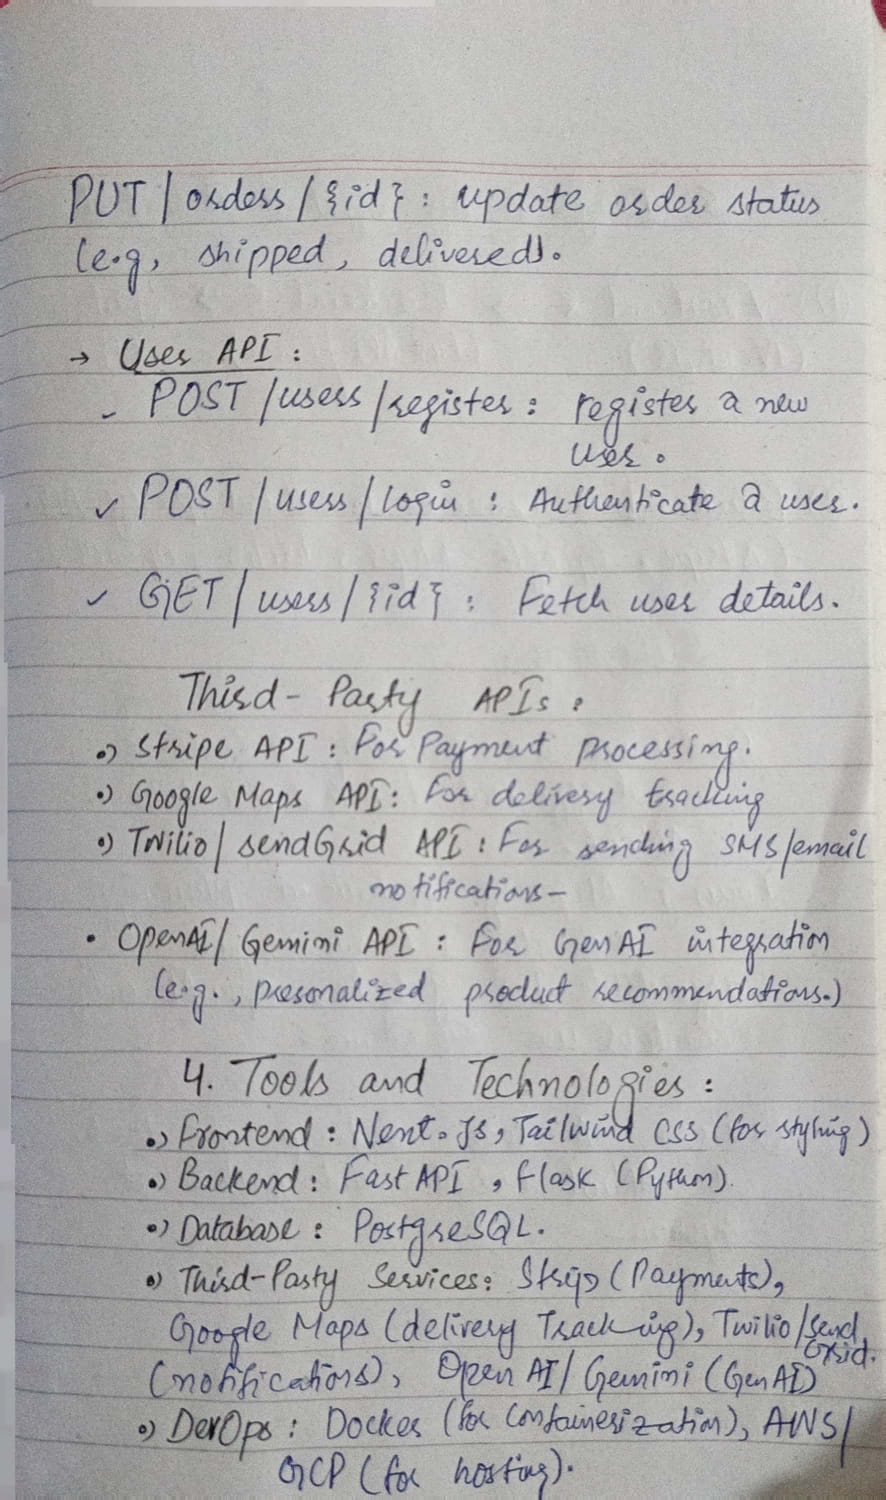 PUT / orders / {id} : update order status
(e.g, shipped, delivered).
→ User API :
- POST / users / register : register a new
user.
✓ POST / users / login : Authenticate a user.
✓ GET / users / {id} : Fetch user details.
Third-Party APIs :
•) Stripe API : For Payment processing.
•) Google Maps API : For delivery tracking
•) Twilio / sendGrid API : For sending SMS/email
notifications-
• OpenAI / Gemini API : For GenAI integration
(e.g., presonalized product recommendations.)
4. Tools and Technologies :
•) Frontend : Next.Js, Tailwind CSS (for styling)
•) Backend : Fast API , flask (Python).
•) Database : PostgreSQL.
•) Third-Party Services : Strip (Payments),
Google Maps (delivery Tracking), Twilio/Send
Grid.
(notifications), Open AI / Gemini (Gen AI)
•) DevOps : Docker (for containerization), AWS/
GCP (for hosting).